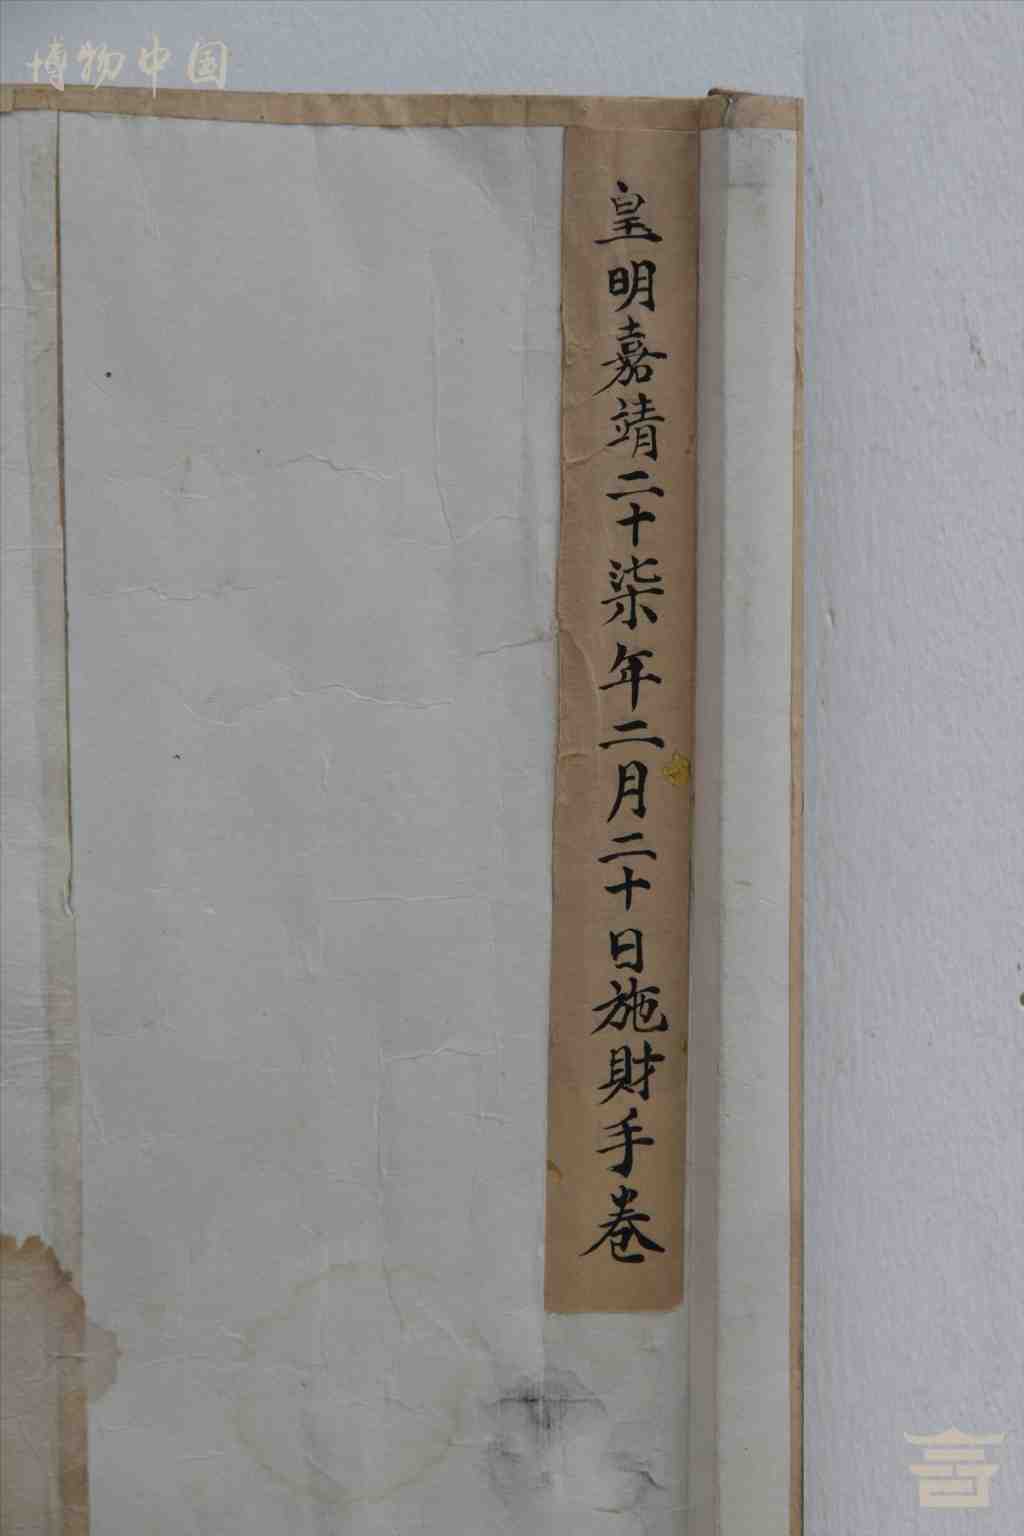 博物中国
皇明嘉靖二十柒年二月二十日施財手卷